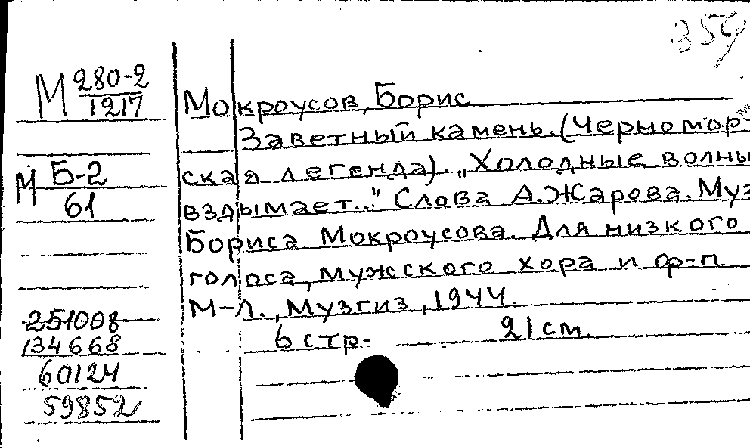 359
М 280-2
1217
Мокроусов, Борис
Заветный камень. (Черномор-
М Б-2
61
ская легенда). „Холодные волны
вздымает..." Слова А.Жарова. Муз
Бориса Мокроусова. Для низкого
голоса, мужского хора и ф-п
М-Л., Музгиз, 1944.
6 стр. 21 см.
251008
134668
60124
59852